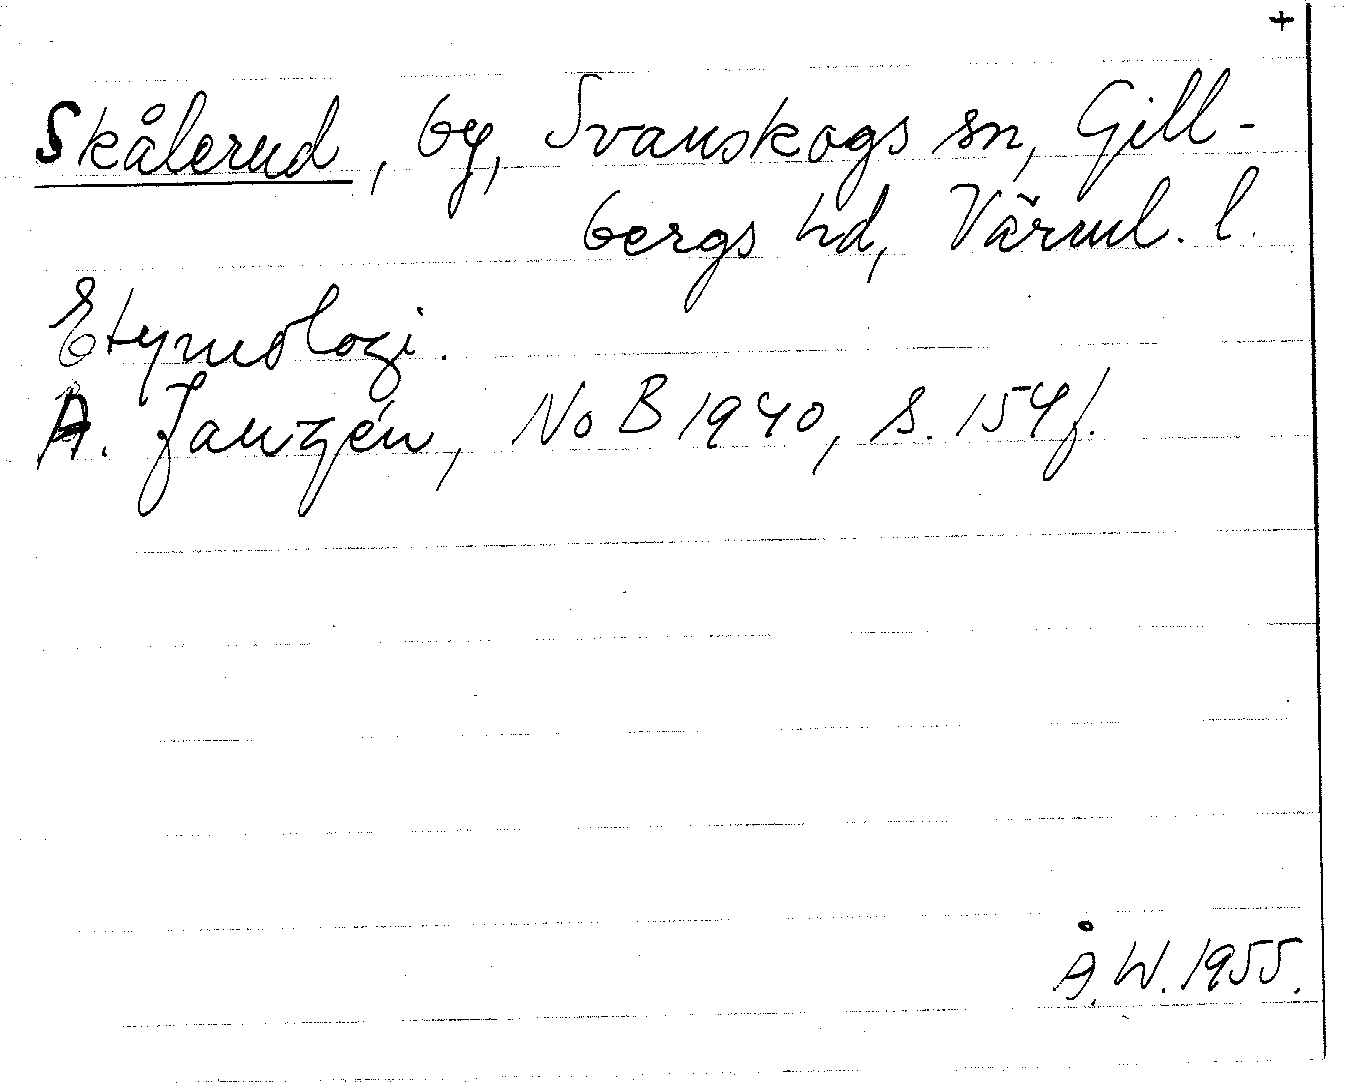 +
Skålerud, by, Svanskogs sn, Gill-
bergs hd, Värml. l.
Etymologi.
A. Janzén, NoB 1940, s. 154f.
Å.W. 1955.